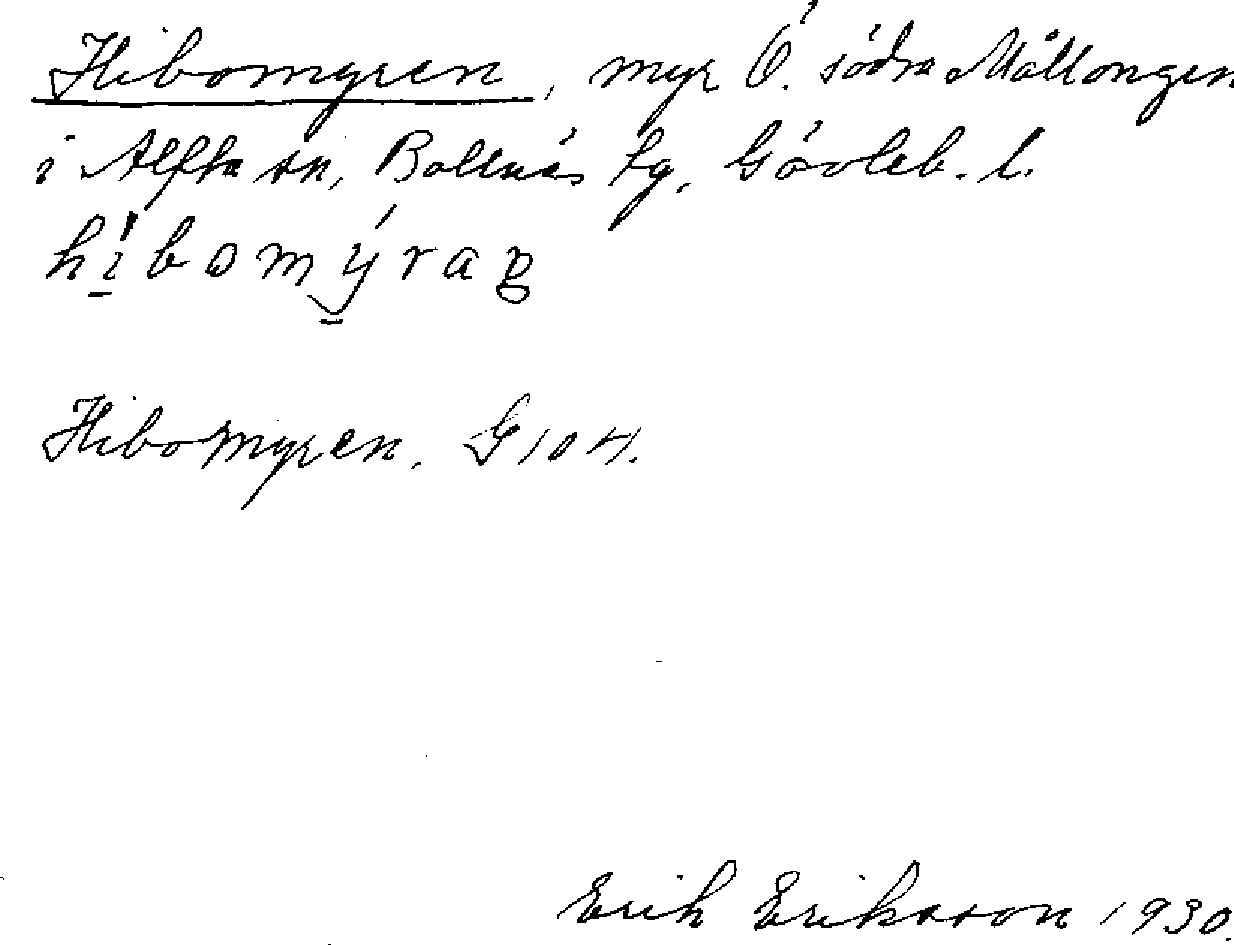 Hibomyren, myr Ö. södra Mållongen
i Alfta sn, Bollnäs tg, Gävleb. l.
Hibomyren. G 104.
Erik Eriksson 1930.